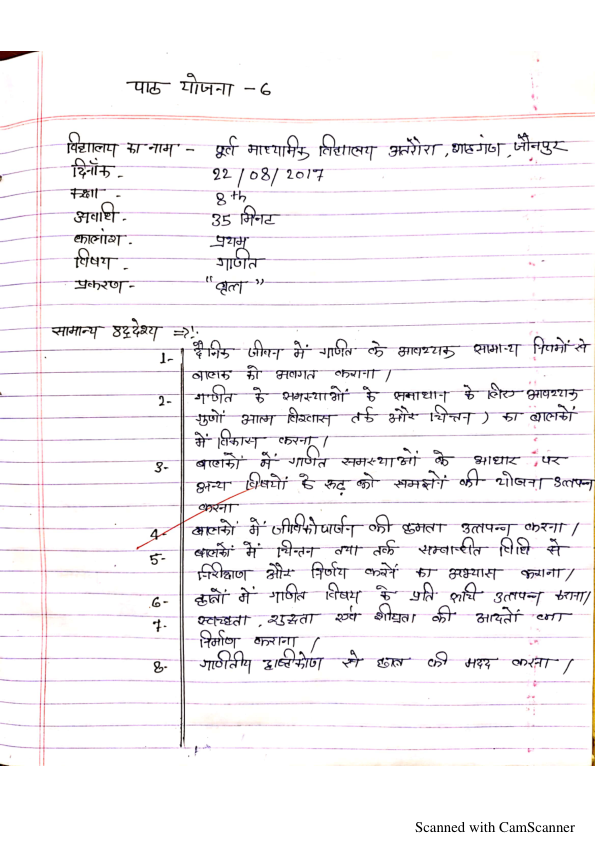 पाठ योजना - 6
विद्यालय का नाम - पूर्व माध्यमिक विद्यालय अतरौरा, शाहगंज, जौनपुर
दिनाँक - 22/08/2017
कक्षा - 8th
अवधि - 35 मिनट
कालांश - प्रथम
विषय - गणित
प्रकरण - "वृत्त"
सामान्य उद्देश्य ⇒
1- दैनिक जीवन में गणित के आवश्यक सामान्य नियमों से
बालक को अवगत कराना।
2- गणित के समस्याओं के समाधान के लिए आवश्यक
गुणों आत्म विश्वास तर्क और चिन्तन) का बालकों
में विकास करना।
3- बालकों में गणित समस्याओं के आधार पर
अन्य विषयों के को समझने की योजना उत्पन्न
करना
4- बालकों में जीविकोपार्जन की क्षमता उत्पन्न करना।
5- बालकों में चिन्तन तथा तर्क सम्बन्धित विधि से
निरीक्षण और निर्णय करने का अभ्यास कराना।
6- छात्रों में गणित विषय के प्रति रुचि उत्पन्न कराना।
7- स्वच्छता, शुद्धता एवं शीघ्रता की आदतों का
निर्माण कराना।
8- गणितीय दृष्टिकोण से छात्र की मदद करना।
Scanned with CamScanner